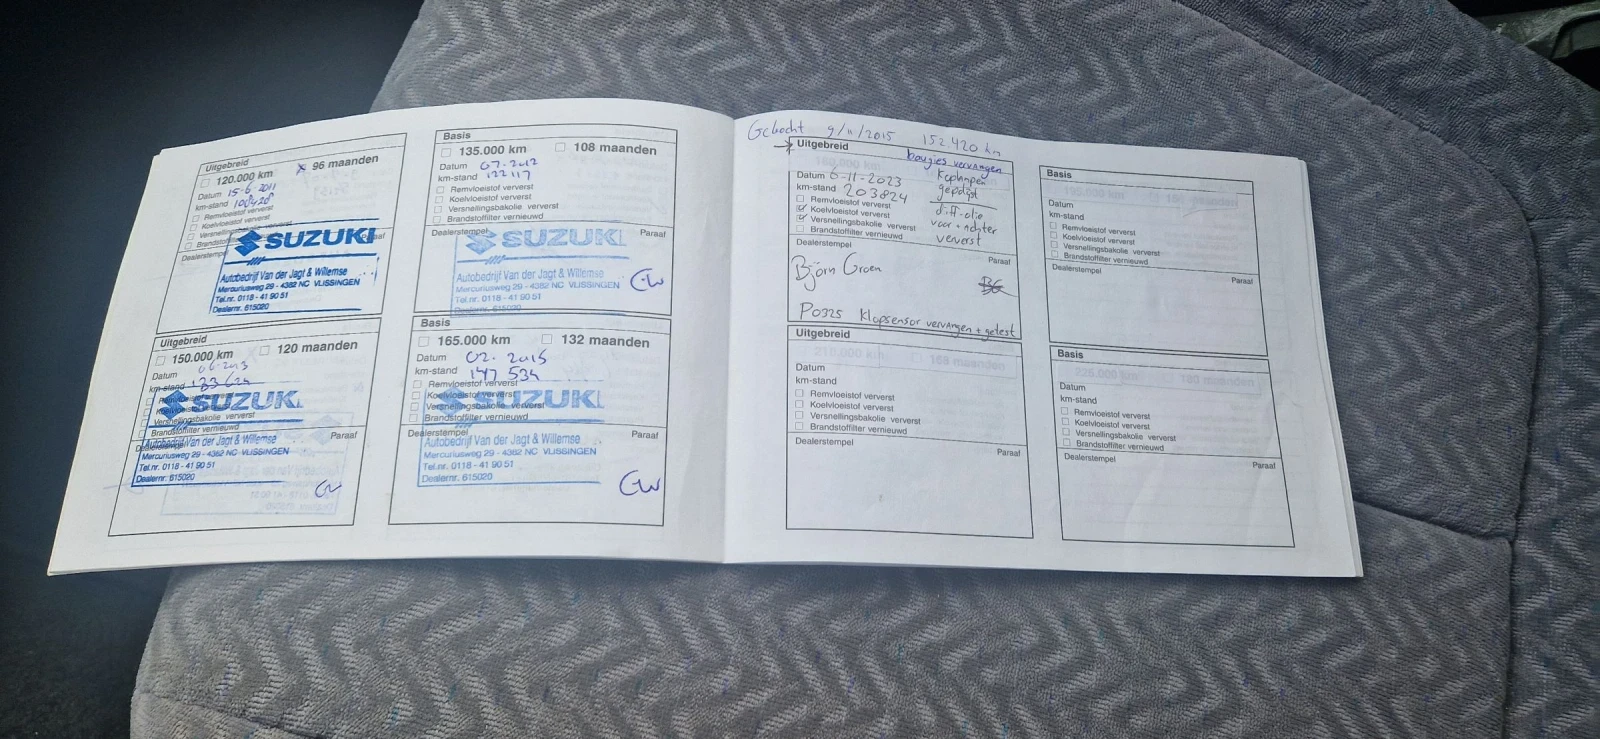 Uitgebreid
120.000 km
96 maanden
Datum 15-6-2011
km-stand 108428
Remvloeistof ververst
Koelvloeistof ververst
Versnellingsbakolie ververst
Brandstoffilter
Dealerstempel
Paraaf
SUZUKI
Autobedrijf Van der Jagt & Willemse
Mercuriusweg 29 - 4382 NC VLISSINGEN
Tel.nr. 0118 - 41 90 51
Dealernr. 615020
Uitgebreid
150.000 km
120 maanden
Datum 06-2013
km-stand
Koelvloeistof
Versnellingsbakolie ververst
Brandstoffilter vernieuwd
Dealerstempel
Paraaf
SUZUKI
Autobedrijf Van der Jagt & Willemse
Mercuriusweg 29 - 4382 NC VLISSINGEN
Tel.nr. 0118 - 41 90 51
Dealernr. 615020
GW
Basis
135.000 km
108 maanden
Datum 07-2012
km-stand 122117
Remvloeistof ververst
Koelvloeistof ververst
Versnellingsbakolie ververst
Brandstoffilter vernieuwd
Dealerstempel
Paraaf
SUZUKI
Autobedrijf Van der Jagt & Willemse
Mercuriusweg 29 - 4382 NC VLISSINGEN
Tel.nr. 0118 - 41 90 51
Dealernr. 615020
GW
Basis
165.000 km
132 maanden
Datum 02-2015
km-stand 147 534
Remvloeistof ververst
Koelvloeistof ververst
Versnellingsbakolie ververst
Brandstoffilter vernieuwd
Dealerstempel
Paraaf
SUZUKI
Autobedrijf Van der Jagt & Willemse
Mercuriusweg 29 - 4382 NC VLISSINGEN
Tel.nr. 0118 - 41 90 51
Dealernr. 615020
GW
Gekocht 9/11/2015 152.420 km
Uitgebreid
bougies vervangen
Koplampen
gepolijst
diff-olie
voor + achter
ververst
Datum 6-11-2023
km-stand 203824
Remvloeistof ververst
Koelvloeistof ververst
Versnellingsbakolie ververst
Brandstoffilter vernieuwd
Dealerstempel
Paraaf
Björn Groen
BG
P0325 Klopsensor vervangen + getest
Uitgebreid
Datum
km-stand
Remvloeistof ververst
Koelvloeistof ververst
Versnellingsbakolie ververst
Brandstoffilter vernieuwd
Dealerstempel
Paraaf
Basis
Datum
km-stand
Remvloeistof ververst
Koelvloeistof ververst
Versnellingsbakolie ververst
Brandstoffilter vernieuwd
Dealerstempel
Paraaf
Basis
Datum
km-stand
Remvloeistof ververst
Koelvloeistof ververst
Versnellingsbakolie ververst
Brandstoffilter vernieuwd
Dealerstempel
Paraaf